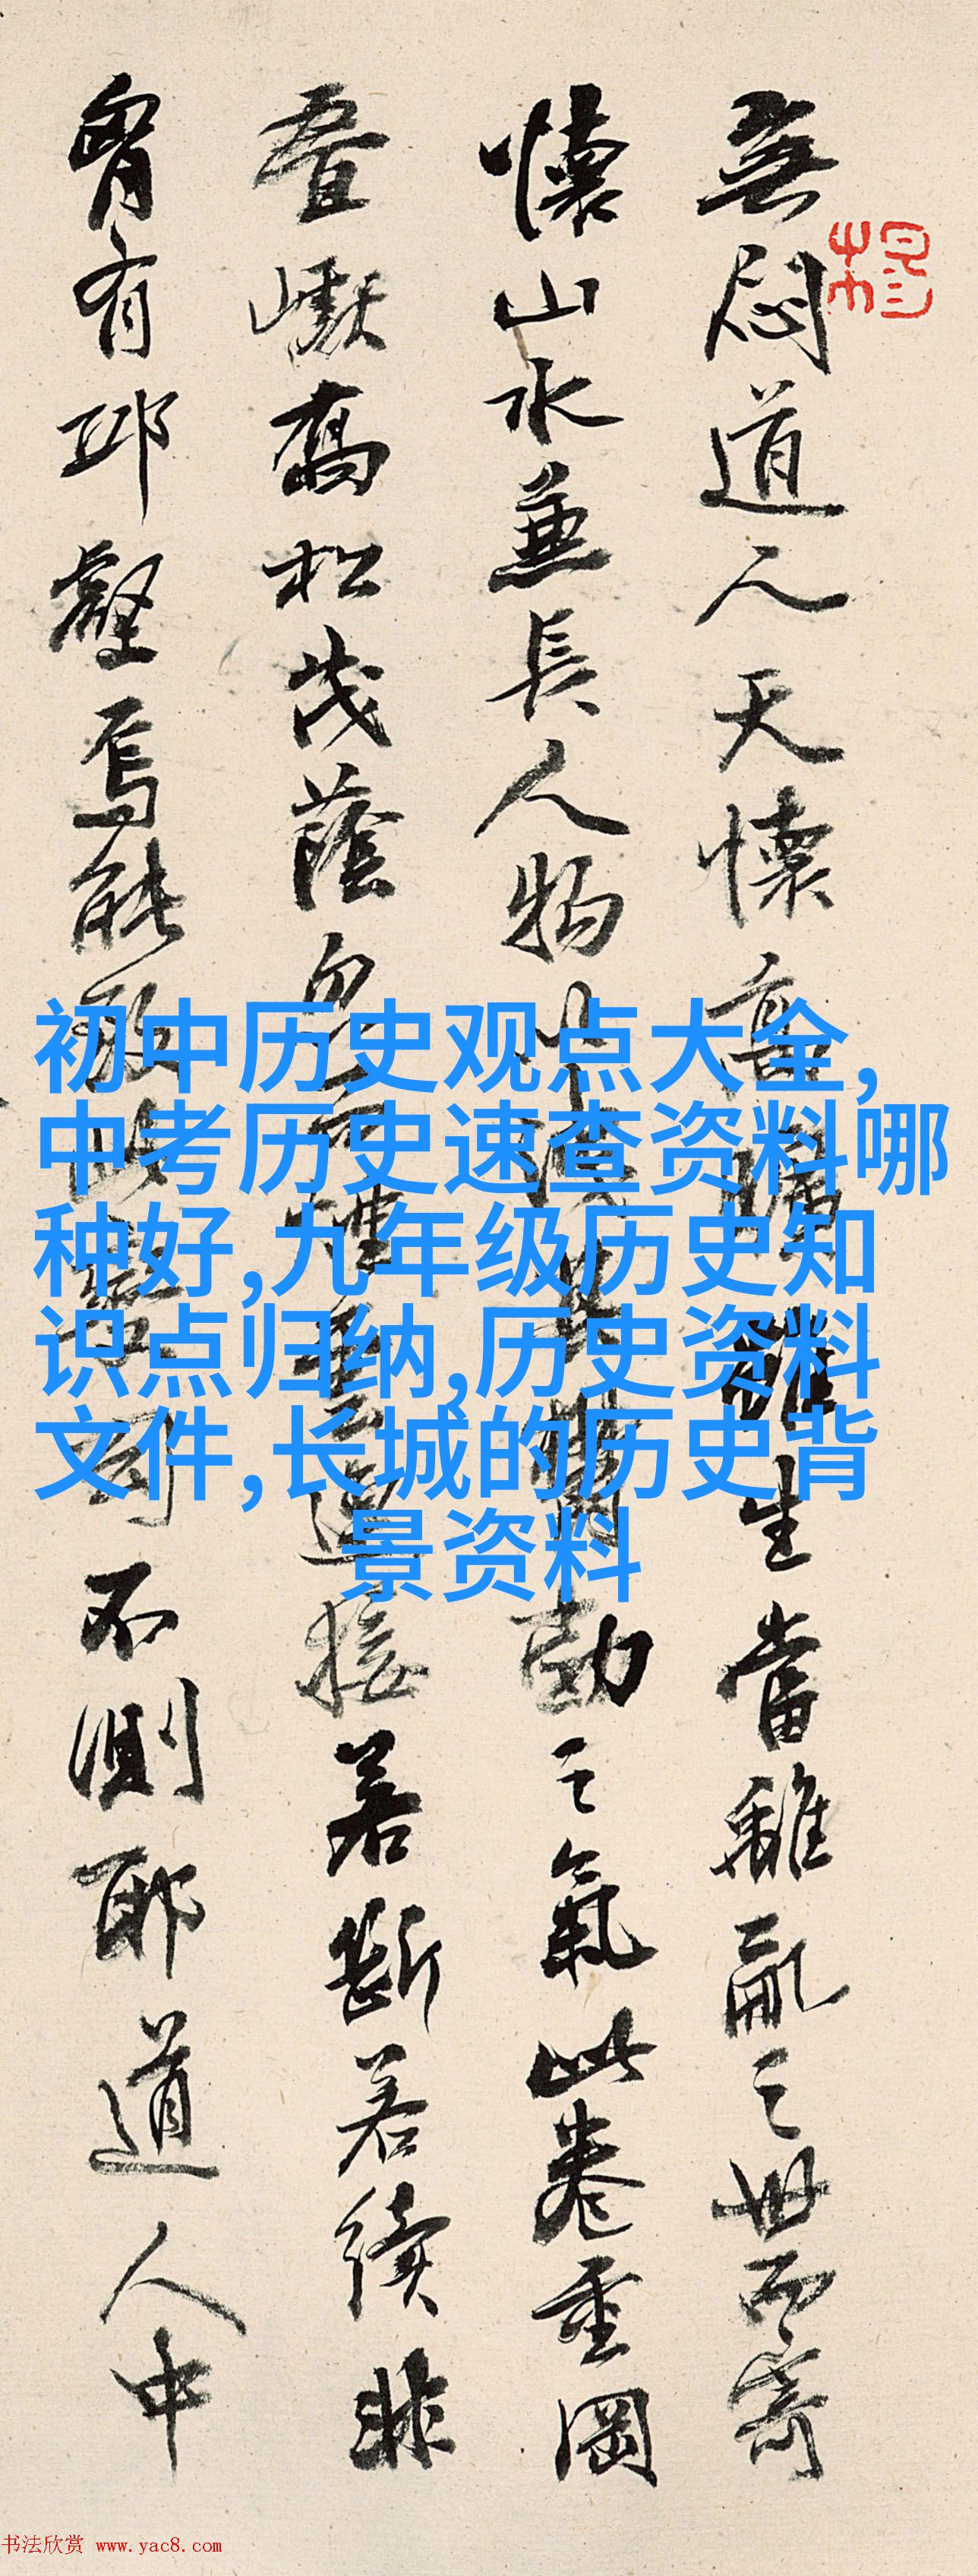 無悶道人天懷高曠雖生當離亂之世而寄
懷山水兼長人物
勁之氣此卷重岡
疊巘喬松茂蔭忽
接若斷若續非
胷有邱壑焉能
不測耶道人中
楊
初中历史观点大全,
中考历史速查资料哪
种好,九年级历史知
识点归纳,历史资料
文件,长城的历史背
景资料
书法欣赏 www.yac8.com